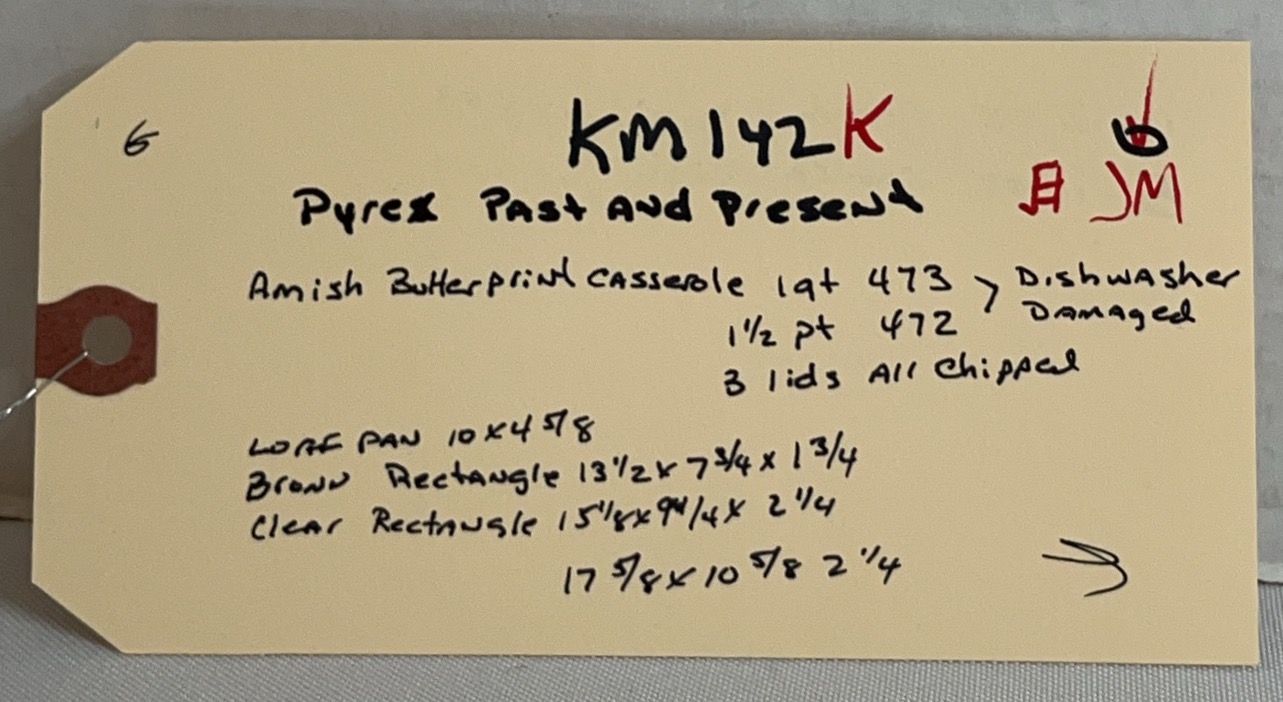 6
KM142K
JM
Pyrex Past And Present
Amish Butterprint Casserole 1qt 473 > Dishwasher
1 1/2 pt 472 Damaged
3 lids All Chipped
LOAF PAN 10 x 4 5/8
Brown Rectangle 13 1/2 x 7 3/4 x 1 3/4
Clear Rectangle 15 1/8 x 9 1/4 x 2 1/4
17 5/8 x 10 5/8 2 1/4